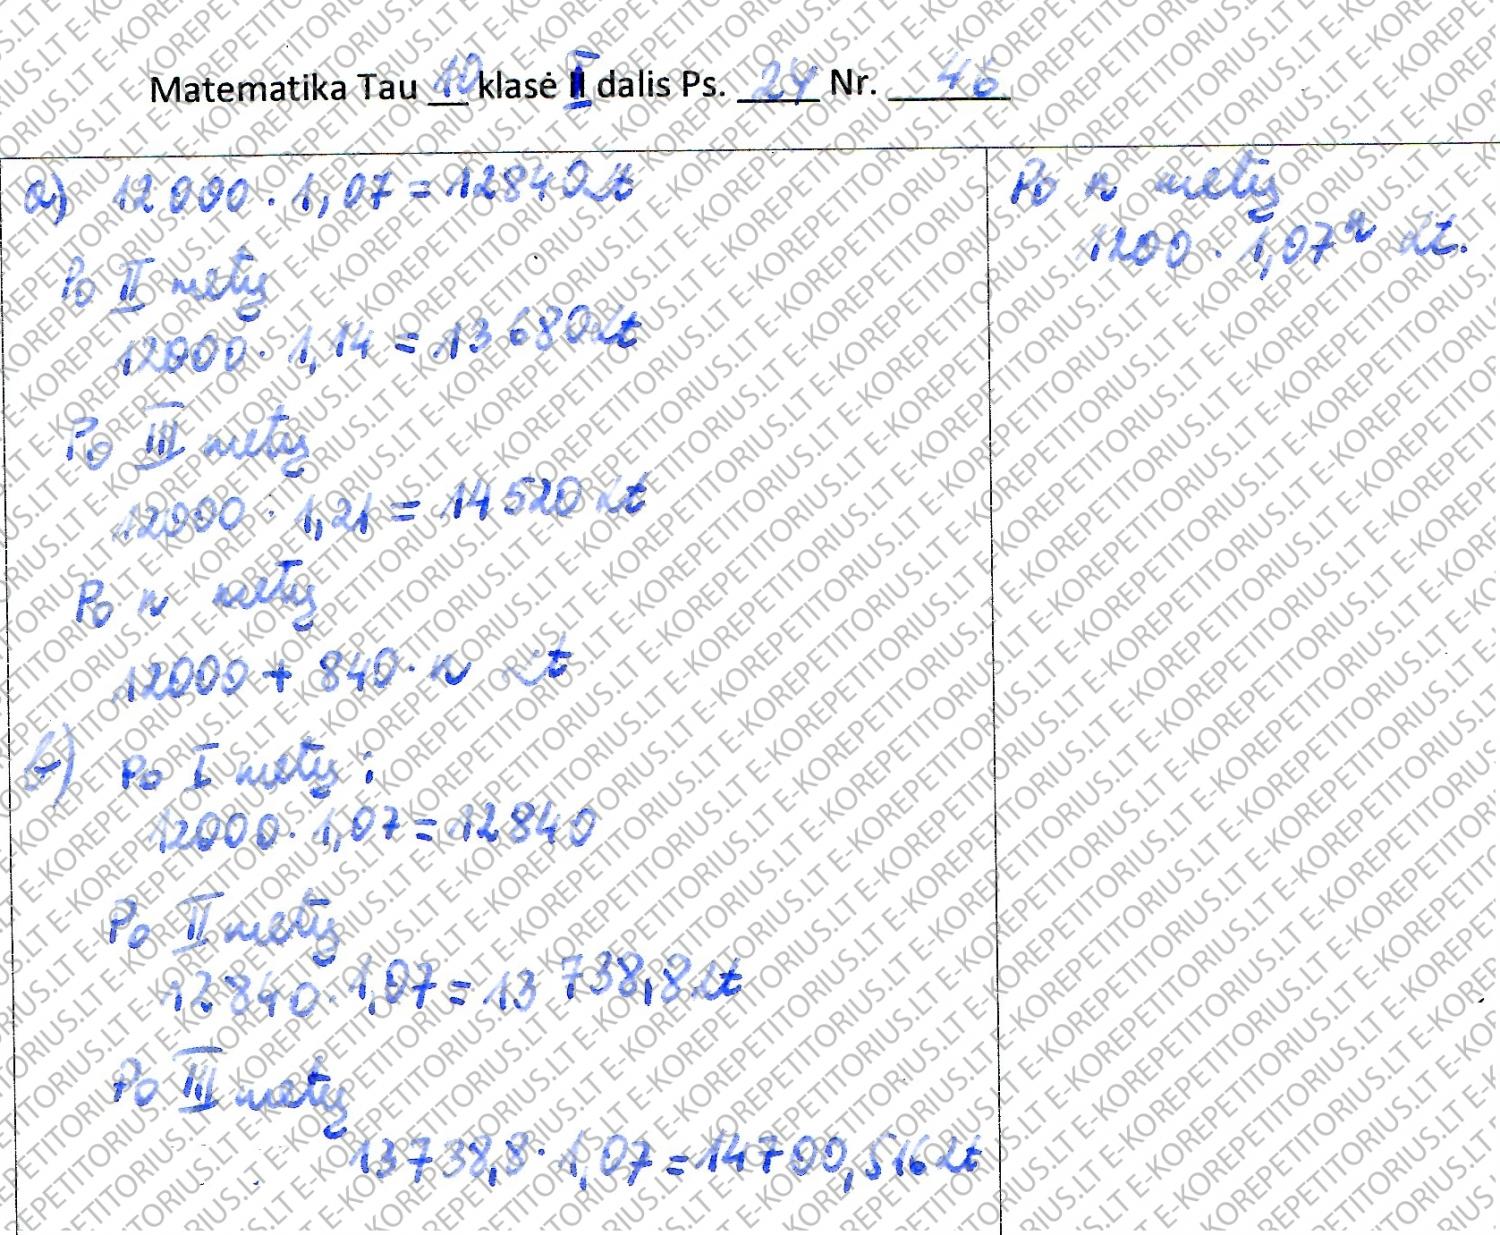 Matematika Tau 10 klasė II dalis Ps. 24 Nr. 46
a) 12000 · 1,07 = 12840 Lt
Po II metų
12000 · 1,14 = 13680 Lt
Po III metų
12000 · 1,21 = 14520 Lt
Po n metų
12000 + 840 · n Lt
b) Po I metų:
12000 · 1,07 = 12840
Po II metų
12840 · 1,07 = 13738,8 Lt
Po III metų
13738,8 · 1,07 = 14700,516 Lt
Po n metų
1200 · 1,07ⁿ Lt.
E-KOREPETITORIUS.LT